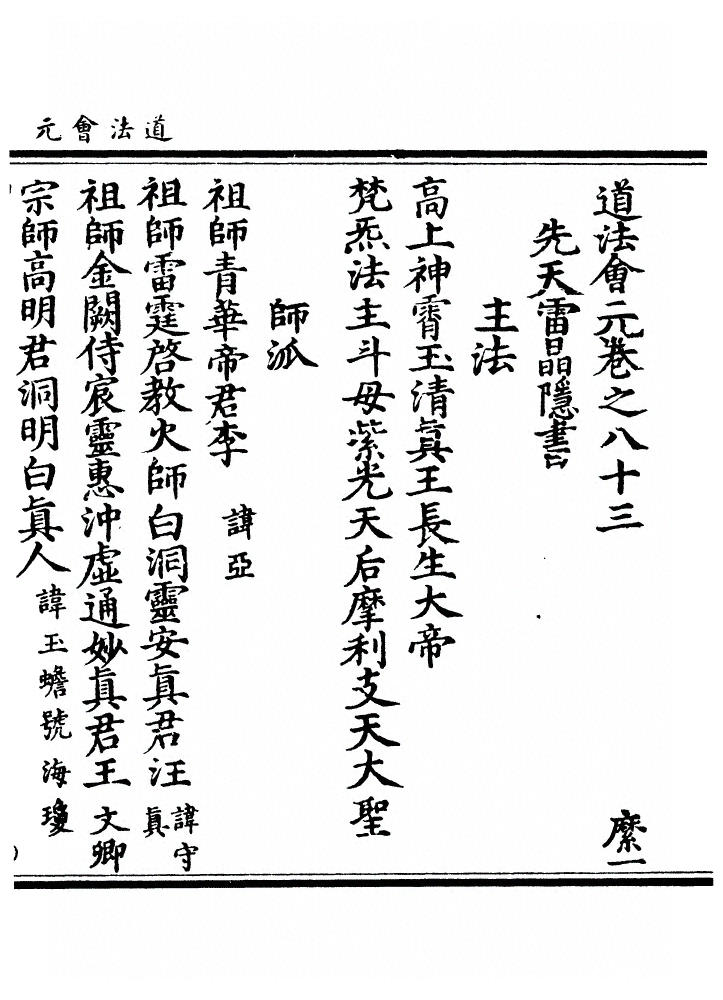 道法會元
道法會元卷之八十三
縻一
先天雷晶隱書
主法
高上神霄玉清眞王長生大帝
梵炁法主斗母紫光天后摩利支天大聖
師派
祖師青華帝君李 諱亞
祖師雷霆啓教火師白洞靈安眞君汪 諱守眞
祖師金闕侍宸靈惠沖虛通妙眞君王 文卿
宗師高明君洞明白眞人 諱玉蟾號海瓊